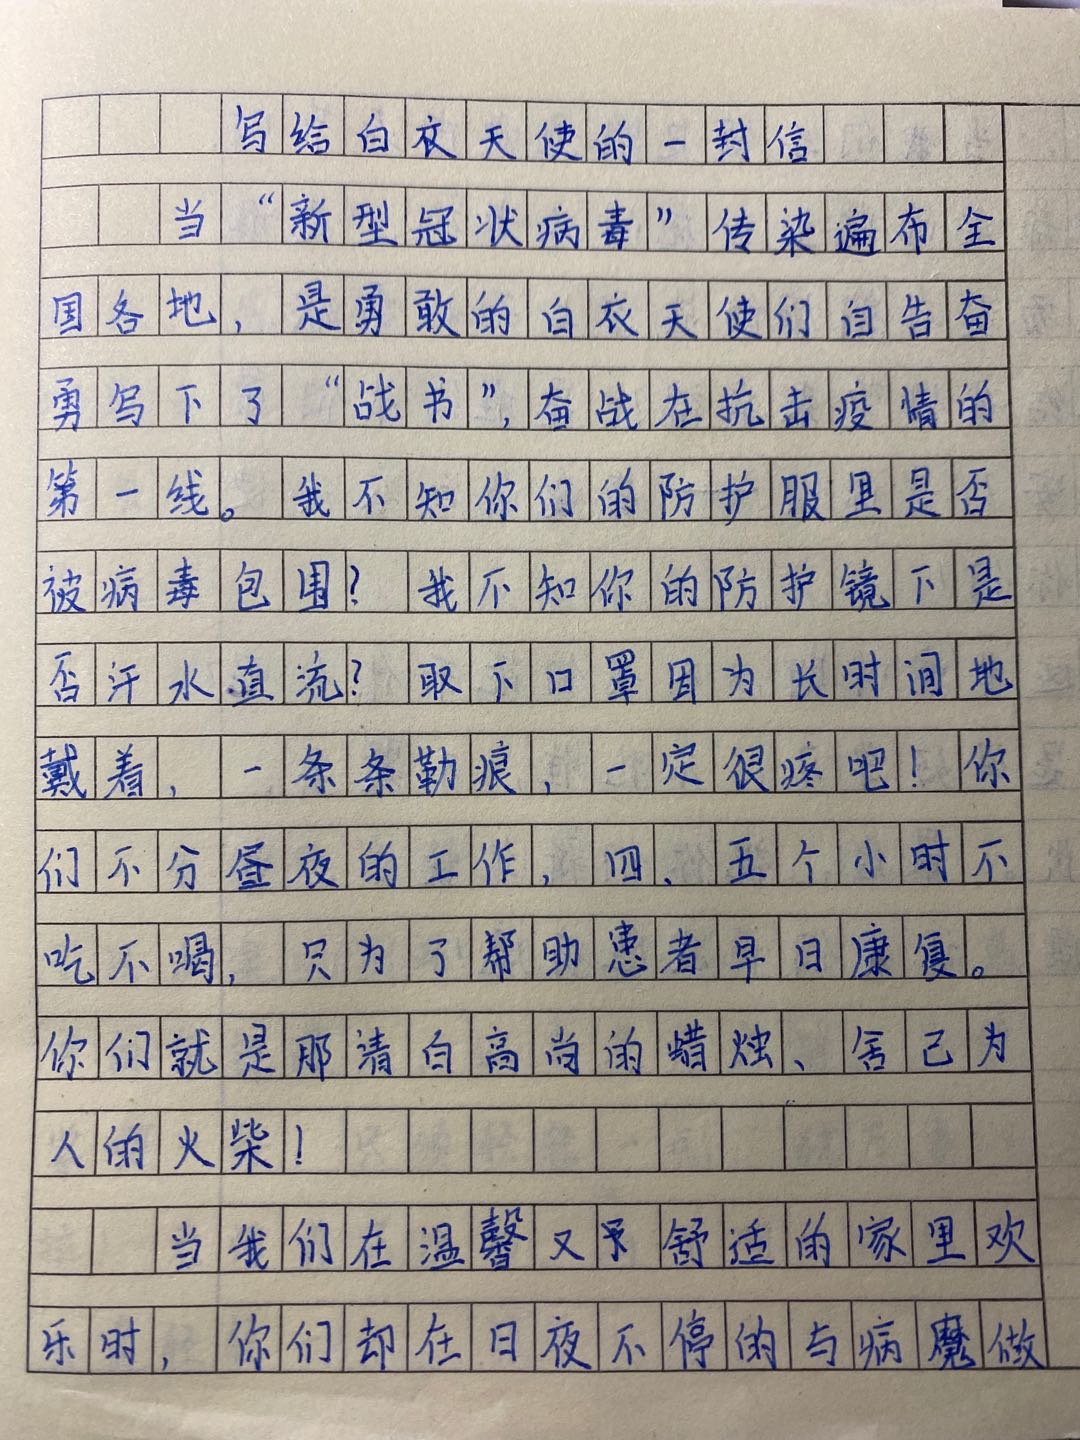 写给白衣天使的一封信
当“新型冠状病毒”传染遍布全
国各地，是勇敢的白衣天使们自告奋
勇写下了“战书”，奋战在抗击疫情的
第一线。我不知你们的防护服里是否
被病毒包围？我不知你的防护镜下是
否汗水直流？取下口罩因为长时间地
戴着，一条条勒痕，一定很疼吧！你
们不分昼夜的工作，四、五个小时不
吃不喝，只为了帮助患者早日康复。
你们就是那清白高尚的蜡烛、舍己为
人的火柴！
当我们在温馨又舒适的家里欢
乐时，你们却在日夜不停的与病魔做